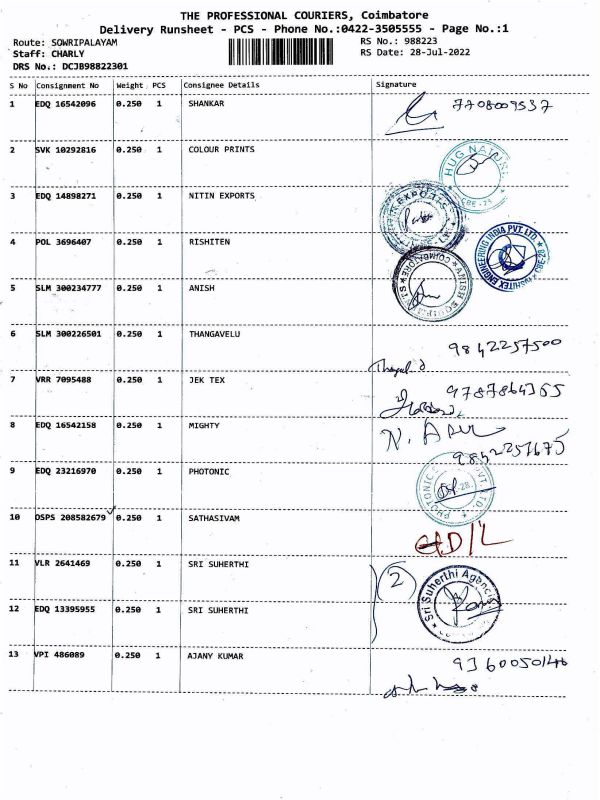 THE PROFESSIONAL COURIERS, Coimbatore
Delivery Runsheet - PCS - Phone No.:0422-3505555 - Page No.:1
Route: SOWRIPALAYAM RS No.: 988223
Staff: CHARLY RS Date: 28-Jul-2022
DRS No.: DCJB98822301
S No Consignment No Weight PCS Consignee Details Signature
1 EDQ 16542096 0.250 1 SHANKAR 7708009537
2 SVK 10292816 0.250 1 COLOUR PRINTS
HUG
3 EDQ 14898271 0.250 1 NITIN EXPORTS
EXPORTS
4 POL 3696407 0.250 1 RISHITEN
ENGINEERING INDIA PVT. LTD.
5 SLM 300234777 0.250 1 ANISH
ANISH COIMBATORE
6 SLM 300226501 0.250 1 THANGAVELU 9842257500
7 VRR 7095488 0.250 1 JEK TEX 9787864365
8 EDQ 16542158 0.250 1 MIGHTY
9842257675
9 EDQ 23216970 0.250 1 PHOTONIC
PHOTONIC PVT. LTD.
10 DSPS 208582679 0.250 1 SATHASIVAM
11 VLR 2641469 0.250 1 SRI SUHERTHI 2
Sri Suherthi Agencies
12 EDQ 13395955 0.250 1 SRI SUHERTHI
13 VPI 486089 0.250 1 AJANY KUMAR 9360050146